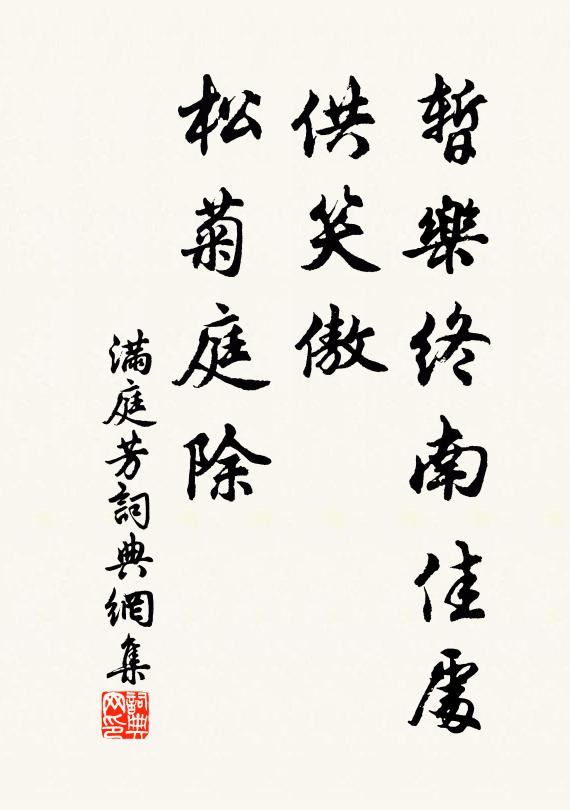 暫樂終南佳處
供笑傲
松菊庭除
滿庭芳詞典網集
詞典网印